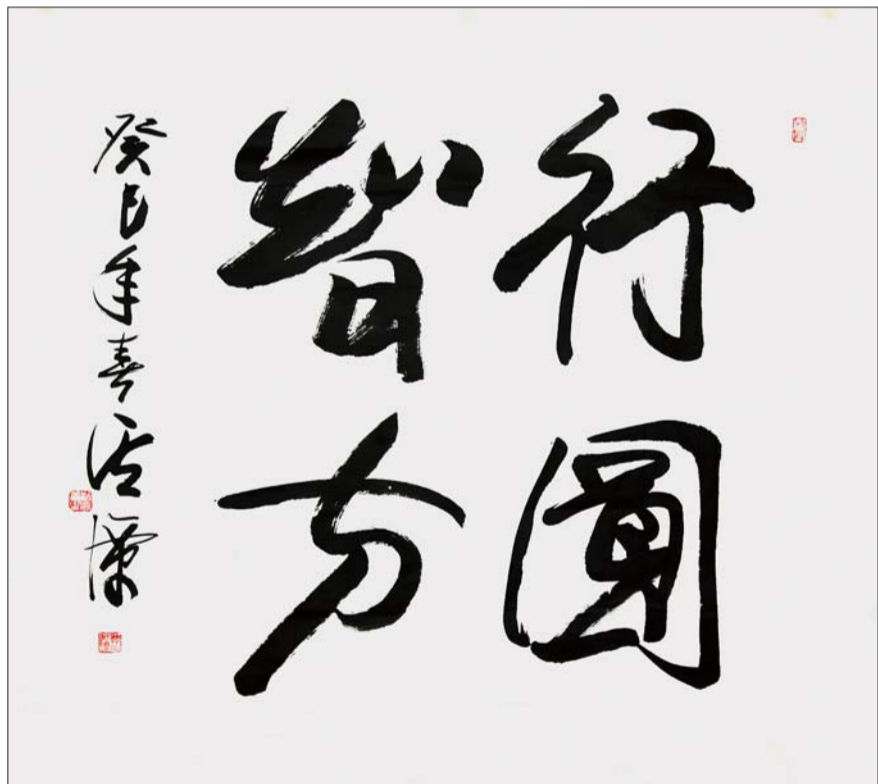 行圓
智方
癸巳年春